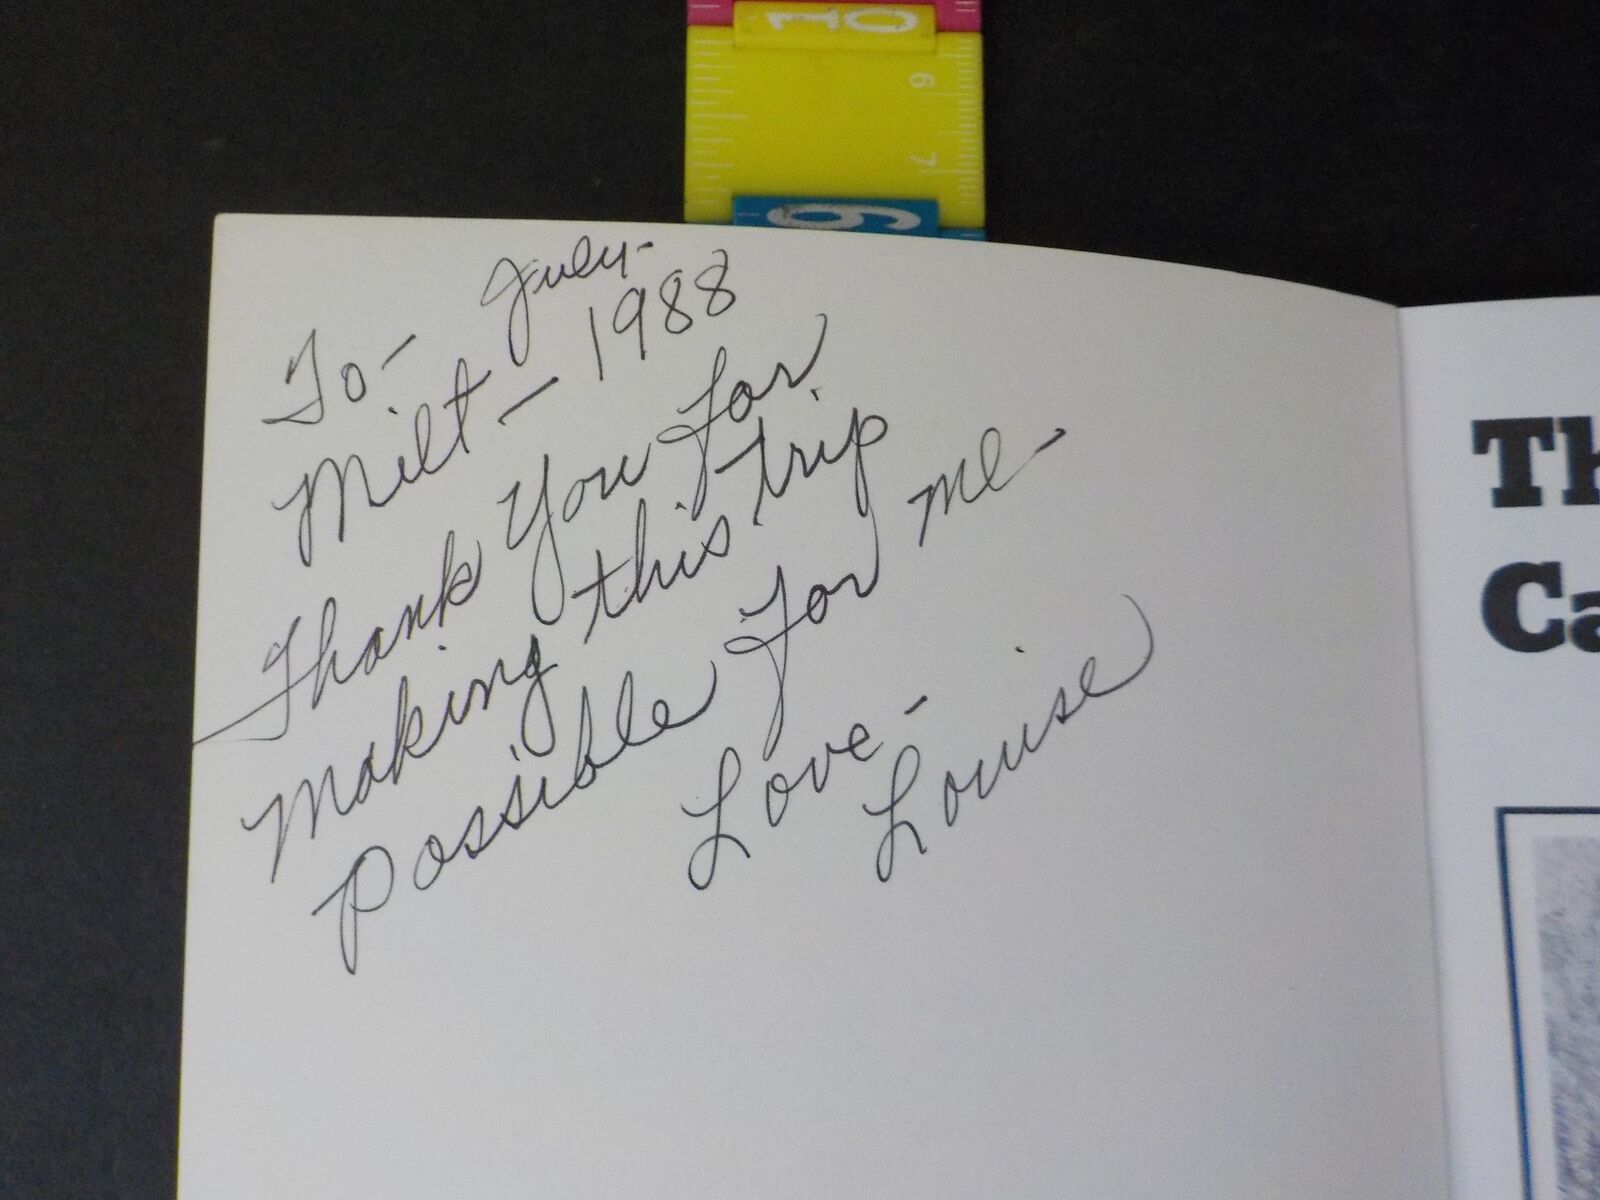 10
9
7
9
To- July-
Milt- 1988
Thank you for
making this trip
possible for me-
Love-
Louise
Th
Ca